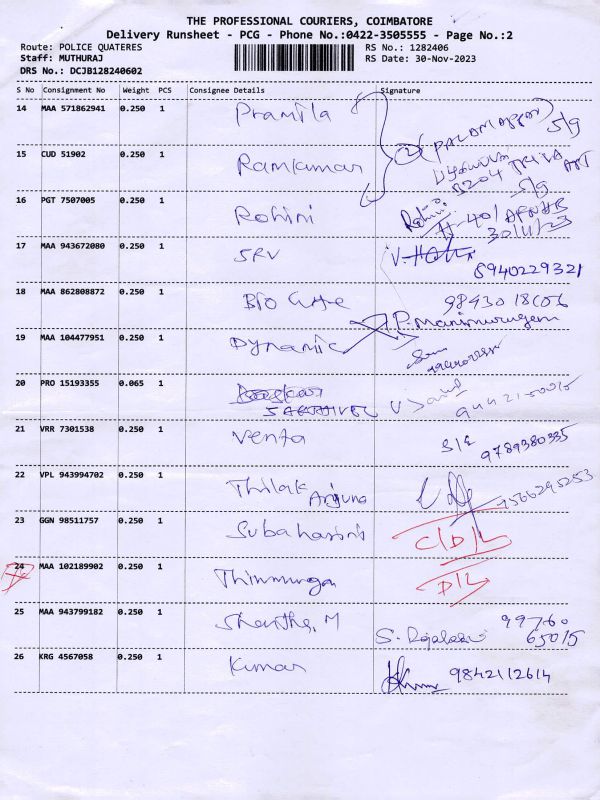 THE PROFESSIONAL COURIERS, COIMBATORE
Delivery Runsheet - PCG - Phone No.:0422-3505555 - Page No.:2
Route: POLICE QUATERES RS No.: 1282406
Staff: MUTHURAJ RS Date: 30-Nov-2023
DRS No.: DCJB128240602
S No Consignment No Weight PCS Consignee Details Signature
14 MAA 571862941 0.250 1 Pramila
5/9
15 CUD 51902 0.250 1 Ramkumar
B204
5/9
16 PGT 7507005 0.250 1 Rohini Rohini
30/11/23
17 MAA 943672080 0.250 1 SRV
8940229321
18 MAA 862808872 0.250 1 Bio
P. Manimurugem
19 MAA 104477951 0.250 1 Dynamic
20 PRO 15193355 0.065 1
SAKTHIVEL
21 VRR 7301538 0.250 1 Venta
9789380335
22 VPL 943994702 0.250 1 Thilak Arjuna 7566295253
23 GGN 98511757 0.250 1 Subahasini C/D/L
24 MAA 102189902 0.250 1 D/L
25 MAA 943799182 0.250 1 Shantha, M 99760
65015
26 KRG 4567058 0.250 1 Kumar 9842112614